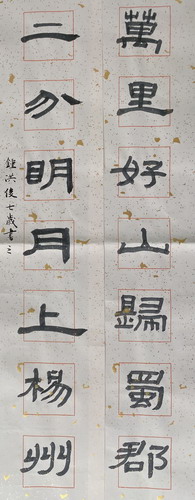 萬里好山歸蜀郡
二分明月上楊州
鍾洪俊七歲書